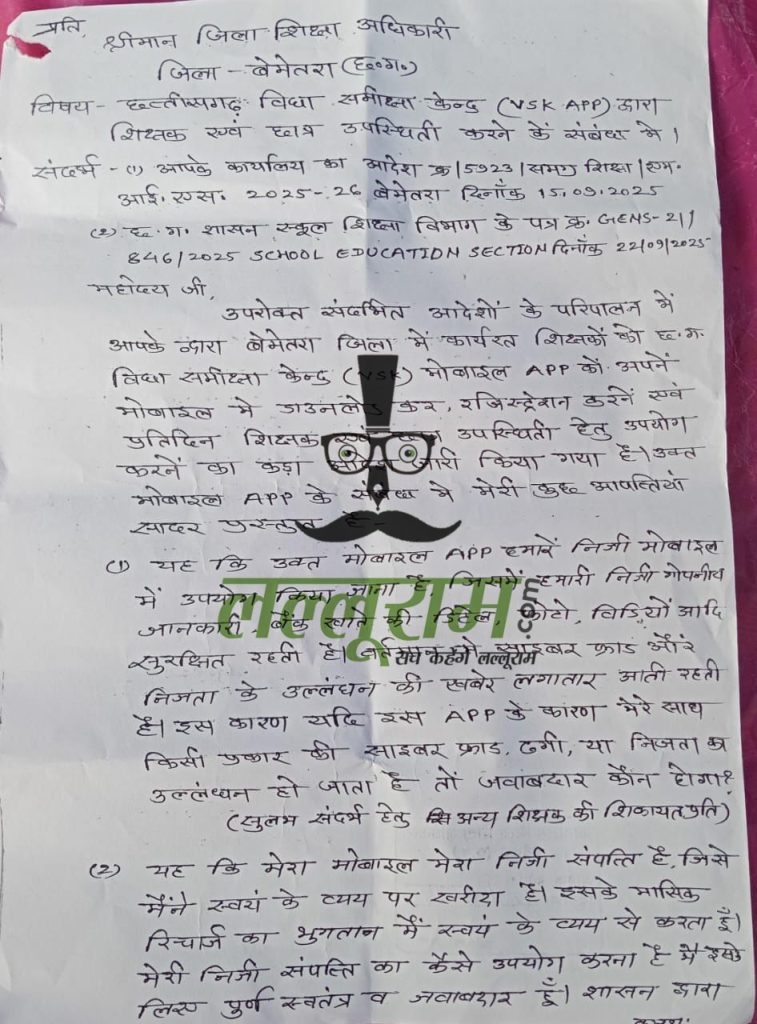 प्रति,
श्रीमान जिला शिक्षा अधिकारी
जिला - बेमेतरा (छ.ग.)
विषय - छत्तीसगढ़ विधा समीक्षा केन्द्र (VSK APP) द्वारा
शिक्षक एवं छात्र उपस्थिती करने के संबंध मे।
संदर्भ - (1) आपके कार्यालय का आदेश क्र/5923/समग्र शिक्षा/एम.
आई.एस. 2025-26 बेमेतरा दिनाँक 15.09.2025
(2) छ.ग. शासन स्कूल शिक्षा विभाग के पत्र क्र. GENS-21/
846/2025 SCHOOL EDUCATION SECTION दिनाँक 22/09/2025
महोदय जी,
उपरोक्त संदर्भित आदेशों के परिपालन में
आपके द्वारा बेमेतरा जिला में कार्यरत शिक्षकों को छ.ग.
विधा समीक्षा केन्द्र (VSK) मोबाइल APP को अपनें
मोबाइल मे डाउनलोड कर, रजिस्ट्रेशन करनें एवं
प्रतिदिन शिक्षक एवं उपस्थिती हेतु उपयोग
करनें का कड़ा जारी किया गया है। उक्त
मोबाइल APP के संबंध मे मेरी कुछ आपत्तियां
सादर प्रस्तुत है -
(1) यह कि उक्त मोबाइल APP हमारें निजी मोबाइल
में उपयोग किया जाना है, जिसमें हमारी निजी गोपनीय
जानकारी बैंक खाते की डिटेल, फोटो, विडियों आदि
सुरक्षित रहती है। साइबर फ्राड और
निजता के उल्लंघन की खबेर लगातार आती रहती
है। इस कारण यदि इस APP के कारण मेरे साथ
किसी प्रकार की साइबर फ्राड, ठगी, या निजता का
उल्लंध्यन हो जाता है तो जवांबदार कौन होगा?
(सुलभ संदर्भ हेतु अन्य शिक्षक की शिकायत प्रति)
(2) यह कि मेरा मोबाइल मेरा निजी संपत्ति है, जिसे
मैंने स्वयं के व्यय पर खरीदा है। इसके मासिक
रिचार्ज का भुगतान मैं स्वयं के व्यय से करता हूँ।
मेरी निजी संपत्ति का कैसे उपयोग करना है मै इसके
लिए पुर्ण स्वतंत्र व जवाबदार हूँ। शासन द्वारा
क्रमश:
लल्लूराम.com
सच कहेंगे लल्लूराम